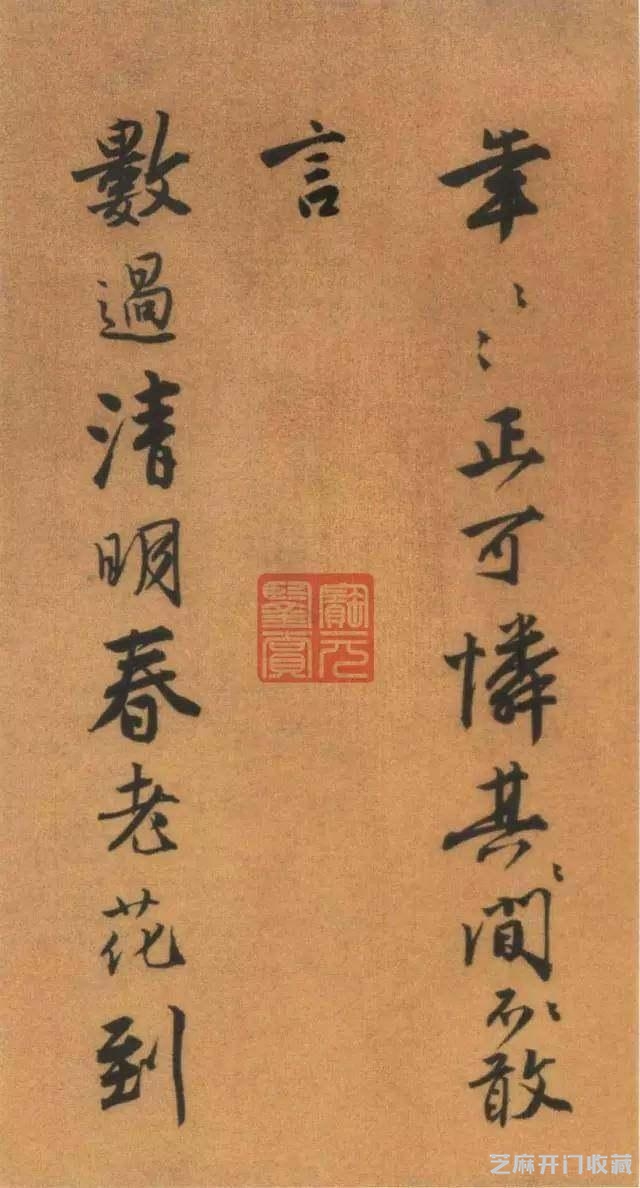 年〻正可憐其〻間不〻敢
言
數過清明春老花到
芝麻开门收藏